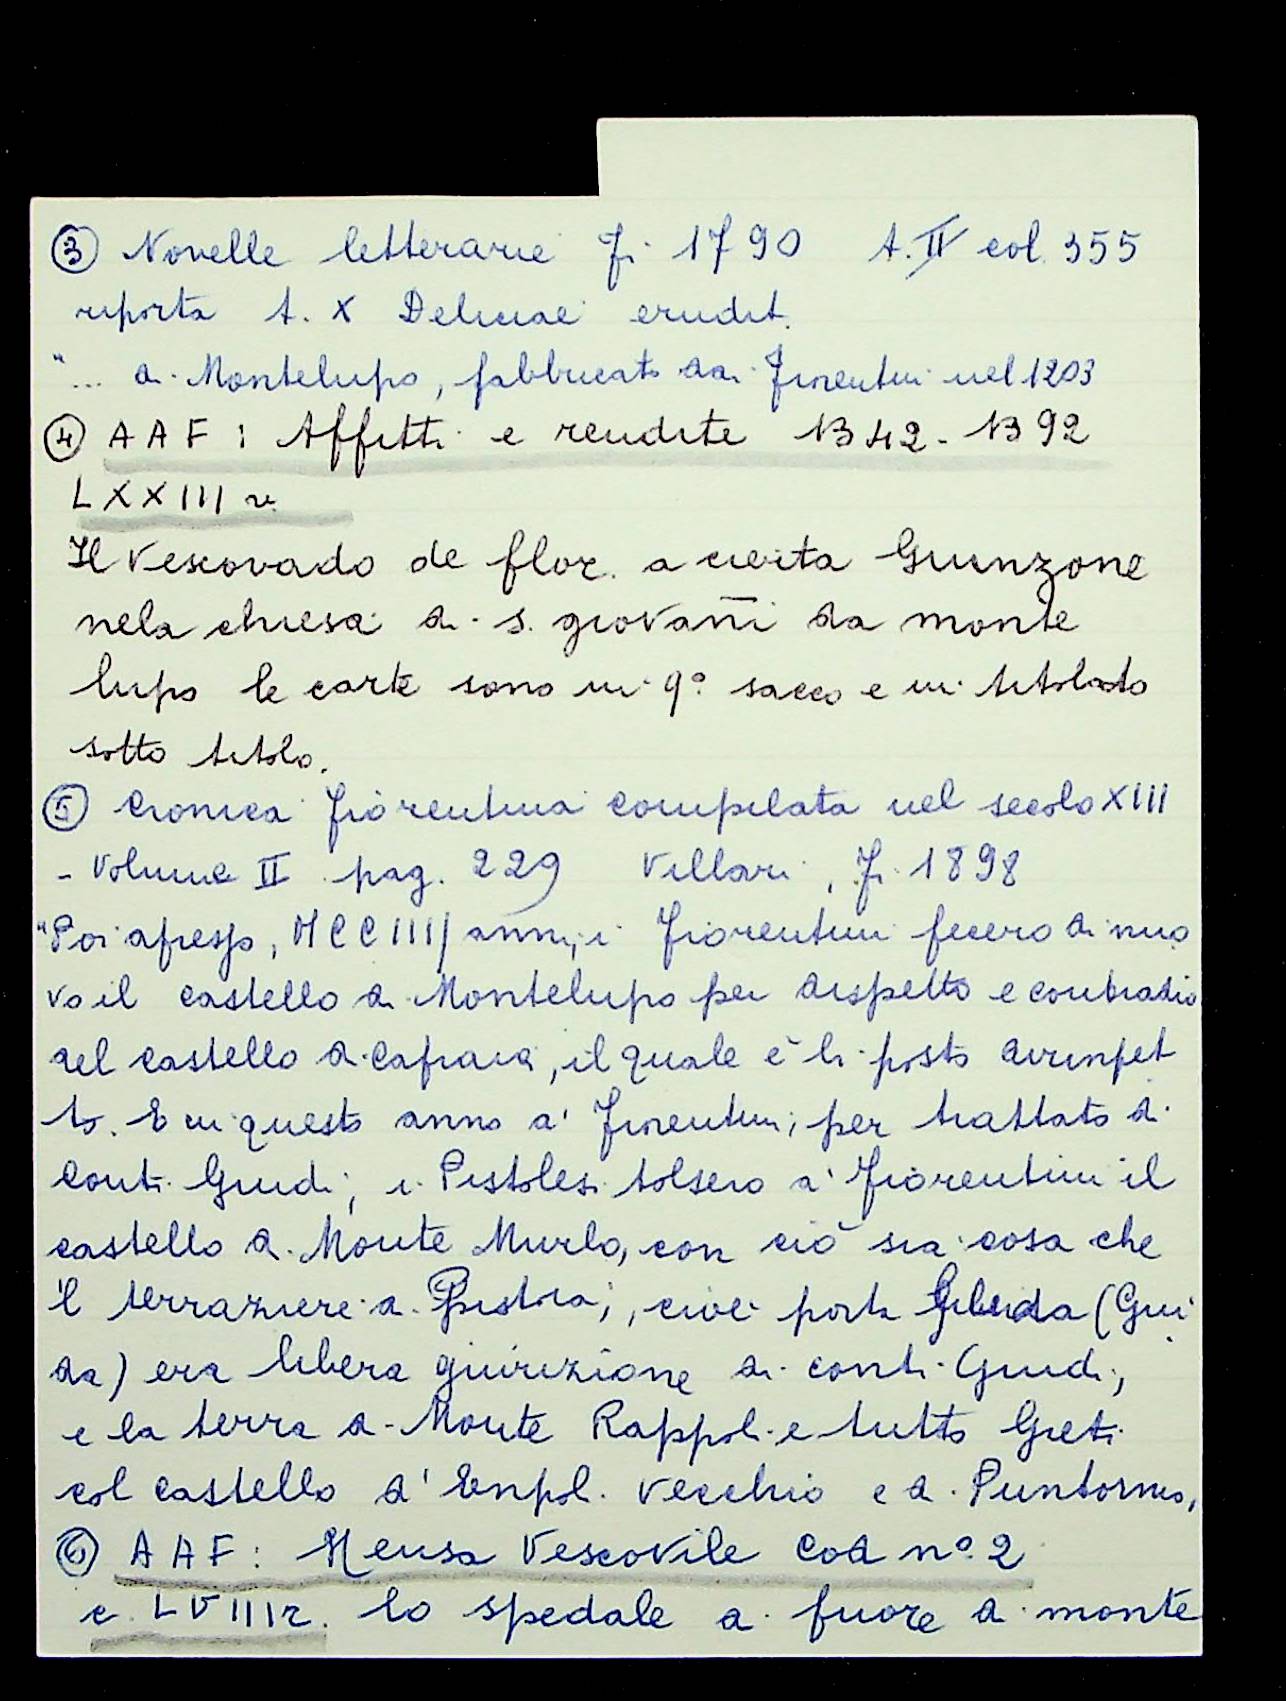 ③ Novelle letterarie Fi 1790 A. II col. 355
riporta t. X Deliciae erudit.
"... di Montelupo, fabbricato dai Fiorentini nel 1203
④ AAF: Affitti e rendite 1342-1392
LXXIII v.
Il Vescovado de flor. a cierta Guinzone
nela chiesa di S. giovañi da monte
lupo le carte sono in 9° sacco e in titolato
sotto titolo.
⑤ Cronica fiorentina compilata nel secolo XIII
- Volume II pag. 229 Villari, Fi 1898
"Poi apresso, MCCIIII anni, i Fiorentini fecero di nuo
vo il castello di Montelupo per dispetto e contradio
del castello di Capraia, il quale è li posto dirinpet
to. E in questo anno a' Fiorentini, per trattato di
Conti Guidi, i Pistolesi tolsero a' Fiorentini il
castello di Monte Murlo, con ciò sia cosa che
'l terraziere di Pistoia, cioè porta (Gui
da) era libera giurizione di conti Guidi,
e la terra di Monte Rappoli e tutto Greti
col castello d'Enpoli vecchio e di Puntormo,
⑥ AAF: Mensa Vescovile Cod n° 2
c. LVIII r. lo spedale di fuore di monte